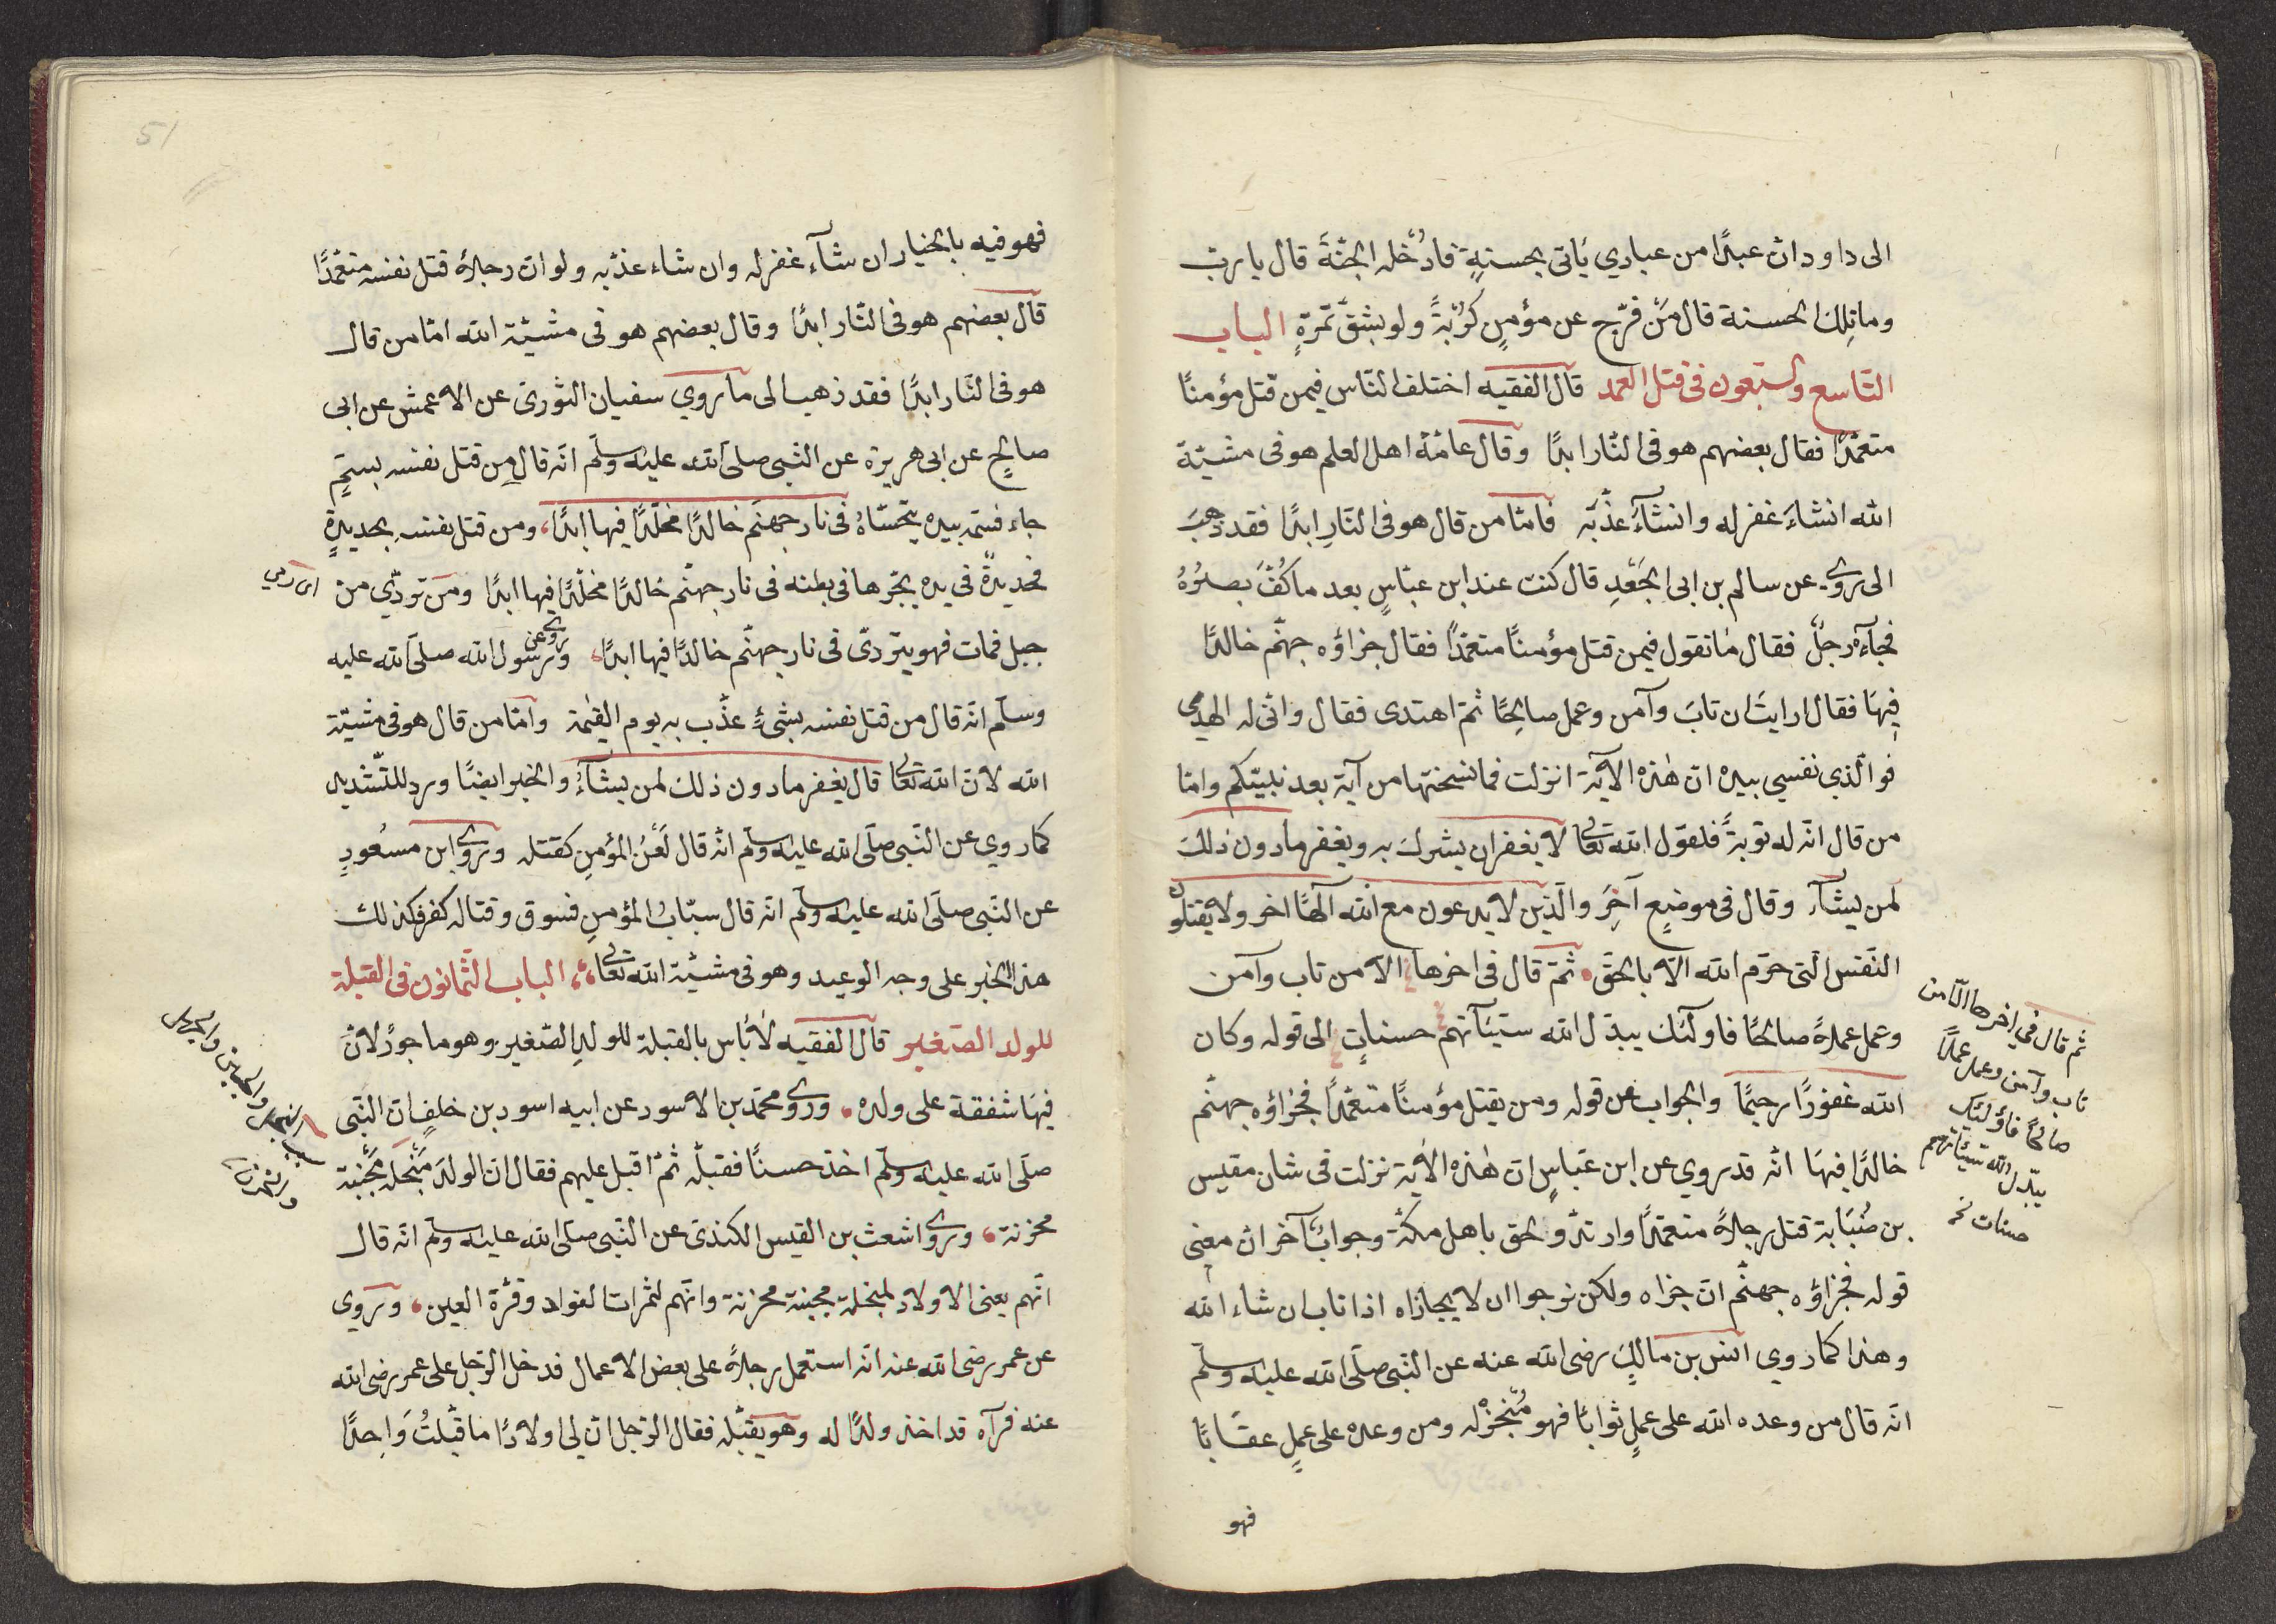 الى داود ان عبدًا من عبادي يأتى بحسنةٍ فادُخله الجنّةَ قال يا ربّ
وما تِلك الحسنة قال مَنْ فرّج عن مؤمنٍ كُرْبةً ولو بشقّ تمرةٍ الباب
التّاسع والسّبعون فى قتل العمد قال الفقيه اختلف النّاس فيمن قتل مؤمنًا
متعمّدًا فقال بعضهم هو فى النّار ابدًا وقال عامّة اهل العلم هو فى مشيّة
الله انشآءَ غفر له وانشآءَ عذّبه فامّا من قال هو فى النّارِ ابدًا فقد ذهبَ
الى ما روى عن سالم بن ابى الجَعْدِ قال كنت عند ابن عبّاسٍ بعد ما كُفَّ بصرُهُ
فجآءه رجلٌ فقال ما تقول فيمن قتل مؤمنًا متعمّدًا فقال جزاؤه جهنّم خالدًا
فيهَا فقال ارايتَ ان تابَ وآمن وعمل صالِحًا ثمّ اهتدى فقال وانّى له الهدى
فوالّذي نفسي بيده انّ هٰذه الآية انزلت فما نسختها من آية بعد نبيّكم وامّا
من قال انّه له توبةً فلقول الله تعالى لا يغفر ان يشرك به ويغفر ما دون ذلكَ
لمن يشآء وقال فى موضعٍ آخَرَ والّذين لا يدعون مع الله آلهًا اخر ولا يقتلون
النّفس الّتى حرّم الله الّا بالحقّ ثمّ قال فى اخرها الّا من تاب وآمن
وعمل عملًا صالحًا فاولٓئك يبدّل الله سيّئآتهم حسناتٍ الى قوله وكان
الله غفورًا رحيمًا والجواب عن قوله ومن يقتل مؤمنًا متعمّدًا فجزاؤه جهنّم
خالدًا فيهَا انّه قد روي عن ابن عبّاسٍ انّ هٰذه الآية نزلت فى شان مقيس
بن صُبَابة قتل رجلًا متعمّدًا وارتدّ ولحق باهل مكّة وجوابٌ آخر انّ معنى
قوله فجزاؤه جهنّم انّ جزاه ولكن نرجوا ان لا يجازاه اذا تاب ان شاء الله
وهذا كما روي انس بن مالكٍ رضى الله عنه عن النّبى صلّى الله عليه وسلّم
انّه قال من وعده الله على عملٍ ثوابًا فهو مُنْجزٌ له ومن وعده على عملٍ عقابًا
فهو
ثم قال في اخرها الّا من
تاب وآمن وعمل عملًا
صالحًا فاولئك
يبدّل الله سيّئاتهم
حسنات
51
فهو فيه بالخيار ان شآء غفر له وان شاء عذّبه ولو انّ رجلًا قتل نفسه متعمّدًا
قال بعضهم هو فى النّار ابدًا وقال بعضهم هو فى مشيّة الله امّا من قال
هو فى النّار ابدًا فقد ذهب الى ما روي سفيان الثّورى عن الاعمش عن ابى
صالحٍ عن ابى هريرة عن النّبى صلّى الله عليه وسلّم انّه قال من قتل نفسه بسمٍّ
جاء فسمّه بيده يتحسّاهُ فى نار جهنّم خالدًا مخلّدًا فيها ابدًا، ومن قتل نفسه بحديدةٍ
فحديدةٌ فى يده يجرّها فى بطنه فى نار جهنّم خالدًا مخلّدًا فيها ابدًا ومن تردّي من
اى رمى
جبل فمات فهو يتردّى فى نار جهنّم خالدًا فيها ابدًا، وروى عن رسول الله صلّى الله عليه
وسلّم انّه قال من قتل نفسه بشئٍ عذّب به يوم القيمة وامّا من قال هو فى مشيّة
الله لانّ الله تعالى قال يغفر ما دون ذلك لمن يشآءُ والخبر ايضًا ورد للتّشديد
كما روي عن النّبى صلّى الله عليه وسلّم انّه قال لَعْنُ المؤمنِ كقتله وروى ابن مسعُودٍ
عن النّبى صلّى الله عليه وسلّم انّه قال سبابُ المؤمنِ فسوق وقتاله كفر فكذلك
هذا الخبر على وجه الوعيد وهو فى مشيّة الله تعالى، الباب الثّمانون فى القبلة
للولد الصّغير قال الفقيه لا بأس بالقبلة للولدِ الصّغير وهو ماجورٌ لانّ
فيهَا شفقة على ولده وروى محمّد بن الاسود عن ابيه اسود بن خلفٍ ان النّبى
صلّى الله عليه وسلّم اخذ حسنًا فقبلّه ثمّ اقبل عليهم فقال انّ الولدَ مَبْخَلة مَجْبنة
محزنة، وروى اشعث بن القيس الكندىّ عن النّبى صلى الله عليه وسلّم انّه قال
انّهم يعنى الاولاد لمبخلة مجبنة محزنة وانّهم لثمرات الفواد وقرّة العين، وروي
عن عمر رضى الله عنه انّه استعمل رجلًا على بعض الاعمال فدخل الرّجل على عمر رضى الله
عنه فرآه قد اخذ ولدًا له وهو يقبّله فقال الرّجل انّ لى اولادًا ما قبّلتُ وَاحِدًا